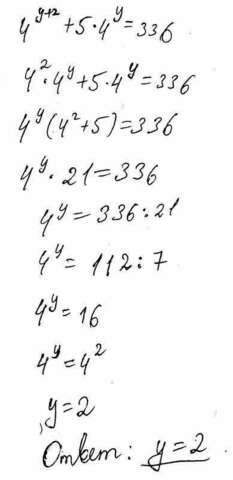 4^{y+2} + 5·4^y = 336
4^2·4^y + 5·4^y = 336
4^y(4^2+5) = 336
4^y·21 = 336
4^y = 336:21
4^y = 112:7
4^y = 16
4^y = 4^2
y = 2
Ответ: y = 2.